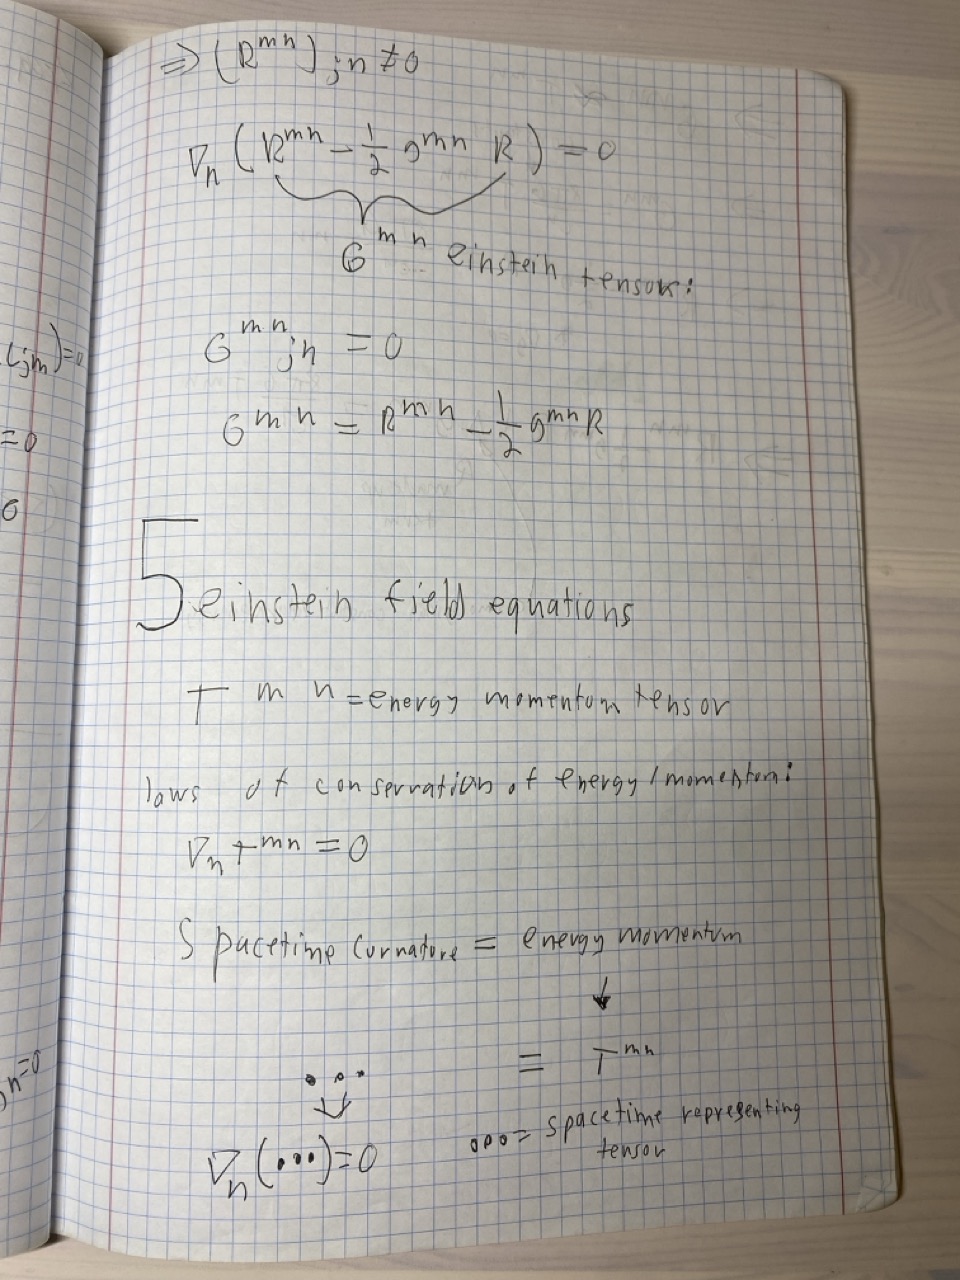 ⇒ (R^mn);n ≠ 0
∇n (R^mn - 1/2 g^mn R) = 0
G^mn einstein tensor:
G^mn;n = 0
G^mn = R^mn - 1/2 g^mn R
5 einstein field equations
T^mn = energy momentum tensor
laws of conservation of energy/momentum:
∇n T^mn = 0
Spacetime curvature = energy momentum
↓
... = T^mn
⇓
∇n (...) = 0
ooo = spacetime representing
tensor
;m) = 0
= 0
n = 0